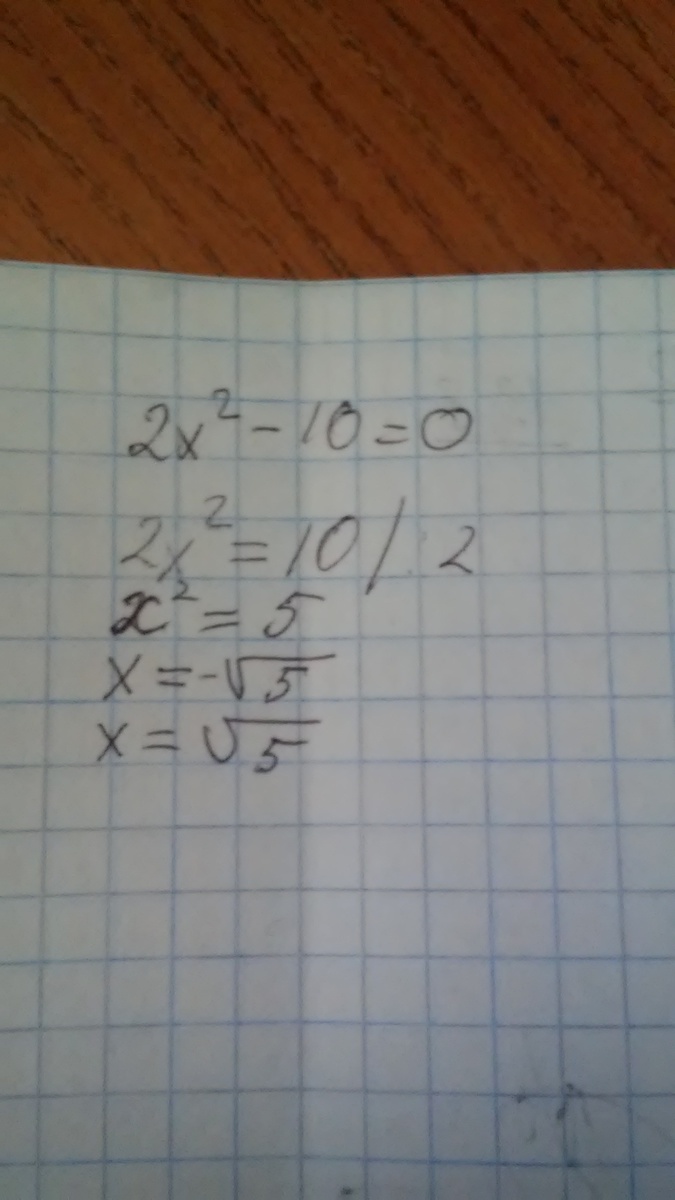 2x² - 10 = 0
2x² = 10 /: 2
x² = 5
x = -√5
x = √5